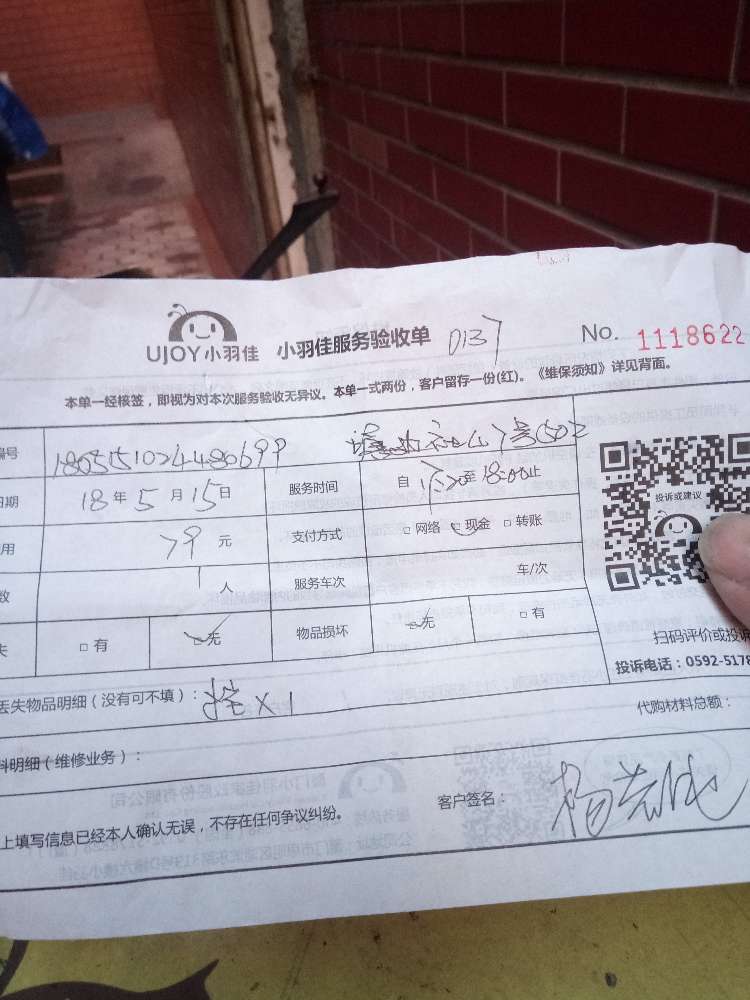 UJOY小羽佳 小羽佳服务验收单 0137 No. 1118622
本单一经核签，即视为对本次服务验收无异议。本单一式两份，客户留存一份(红)。《维保须知》详见背面。
编号
日期 18年5月15日 服务时间 自 至18:00止
用 79元 支付方式 □网络 现金 □转账
数 1人 服务车次 车/次
失 □有 无 物品损坏 无 □有
投诉或建议
扫码评价或投诉
投诉电话：0592-5178
丢失物品明细（没有可不填）： ×1
代购材料总额：
料明细（维修业务）：
客户签名：
上填写信息已经本人确认无误，不存在任何争议纠纷。